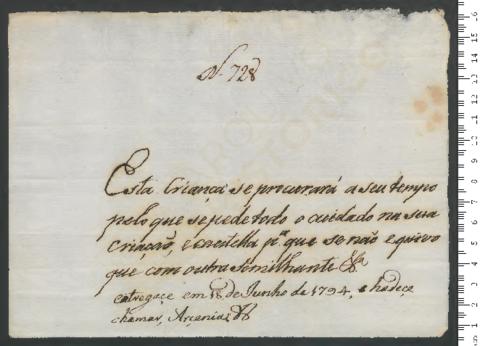 N. 728
Esta Criança se procurará a seu tempo
pelo que se pede todo o cuidado na sua
criação, e cautella pª que se não equivo
que com outra Semilhante &ª
entregace em 18 de Junho de 1794, e hadece
chamar, Arcenia, &